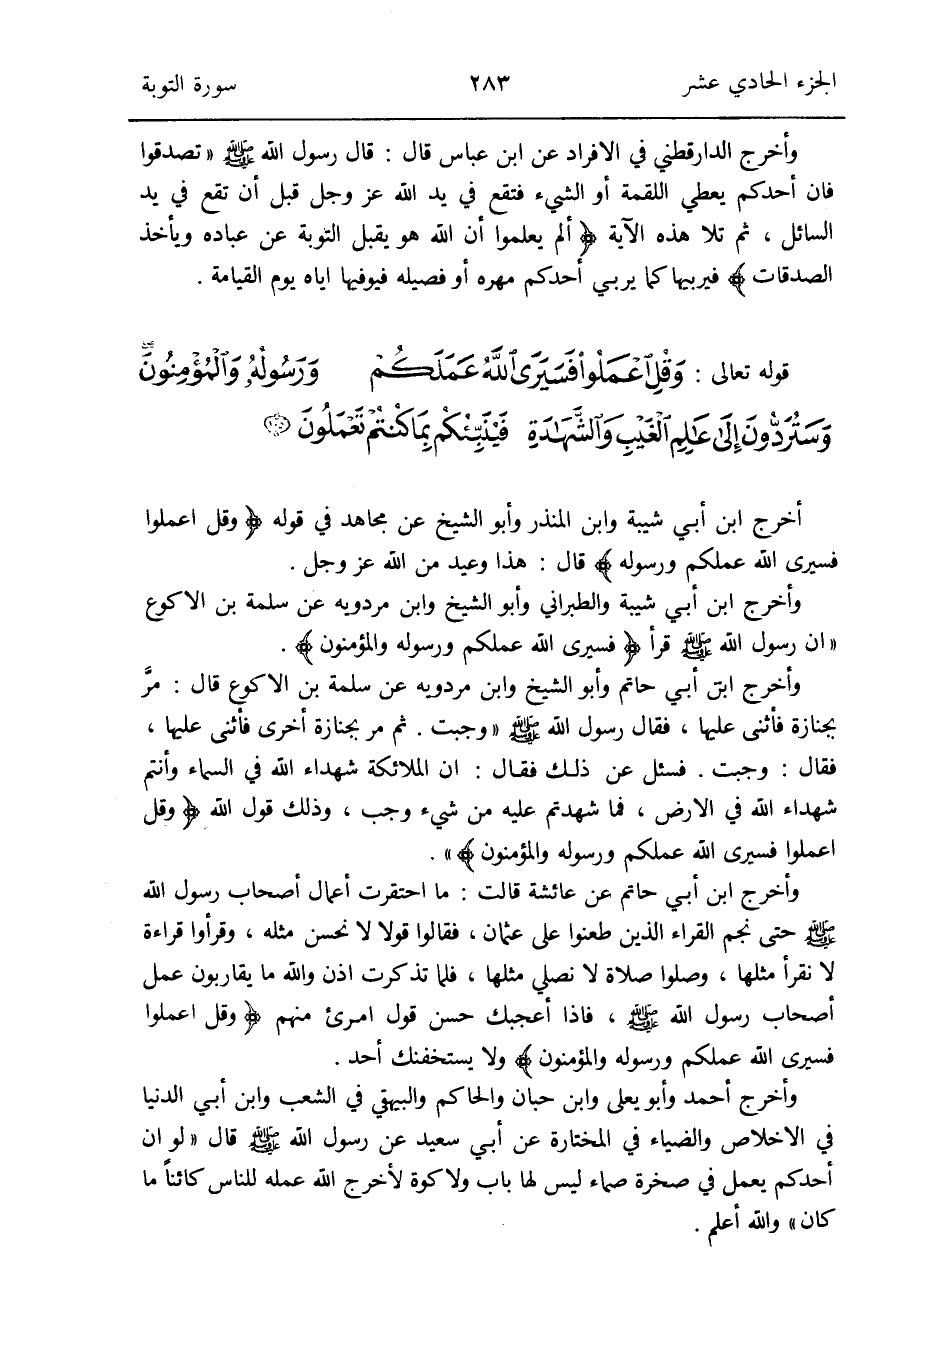 الجزء الحادي عشر ٢٨٣ سورة التوبة
وأخرج الدارقطني في الافراد عن ابن عباس قال : قال رسول الله ﷺ « تصدقوا
فان أحدكم يعطي اللقمة أو الشيء فتقع في يد الله عز وجل قبل أن تقع في يد
السائل ، ثم تلا هذه الآية ﴿ ألم يعلموا أن الله هو يقبل التوبة عن عباده ويأخذ
الصدقات ﴾ فيربيها كما يربي أحدكم مهره أو فصيله فيوفيها اياه يوم القيامة .
قوله تعالى : وَقُلِ ٱعْمَلُوا۟ فَسَيَرَى ٱللَّهُ عَمَلَكُمْ وَرَسُولُهُۥ وَٱلْمُؤْمِنُونَۖ
وَسَتُرَدُّونَ إِلَىٰ عَـٰلِمِ ٱلْغَيْبِ وَٱلشَّهَـٰدَةِ فَيُنَبِّئُكُم بِمَا كُنتُمْ تَعْمَلُونَ ١٠٥
أخرج ابن أبي شيبة وابن المنذر وأبو الشيخ عن مجاهد في قوله ﴿ وقل اعملوا
فسيرى الله عملكم ورسوله ﴾ قال : هذا وعيد من الله عز وجل .
وأخرج ابن أبي شيبة والطبراني وأبو الشيخ وابن مردويه عن سلمة بن الاكوع
« ان رسول الله ﷺ قرأ ﴿ فسيرى الله عملكم ورسوله والمؤمنون ﴾ .
وأخرج ابن أبي حاتم وأبو الشيخ وابن مردويه عن سلمة بن الاكوع قال : مرَّ
بجنازة فأثنى عليها ، فقال رسول الله ﷺ « وجبت . ثم مر بجنازة أخرى فأثنى عليها ،
فقال : وجبت . فسئل عن ذلك فقال : ان الملائكة شهداء الله في السماء وأنتم
شهداء الله في الارض ، فما شهدتم عليه من شيء وجب ، وذلك قول الله ﴿ وقل
اعملوا فسيرى الله عملكم ورسوله والمؤمنون ﴾ » .
وأخرج ابن أبي حاتم عن عائشة قالت : ما احتقرت أعمال أصحاب رسول الله
ﷺ حتى نجم القراء الذين طعنوا على عثمان ، فقالوا قولا لا نحسن مثله ، وقرأوا قراءة
لا نقرأ مثلها ، وصلوا صلاة لا نصلي مثلها ، فلما تذكرت اذن والله ما يقاربون عمل
أصحاب رسول الله ﷺ ، فاذا أعجبك حسن قول امرئ منهم ﴿ وقل اعملوا
فسيرى الله عملكم ورسوله والمؤمنون ﴾ ولا يستخفنك أحد .
وأخرج أحمد وأبو يعلى وابن حبان والحاكم والبيهقي في الشعب وابن أبي الدنيا
في الاخلاص والضياء في المختارة عن أبي سعيد عن رسول الله ﷺ قال « لو ان
أحدكم يعمل في صخرة صماء ليس لها باب ولا كوة لأخرج الله عمله للناس كائناً ما
كان » والله أعلم .